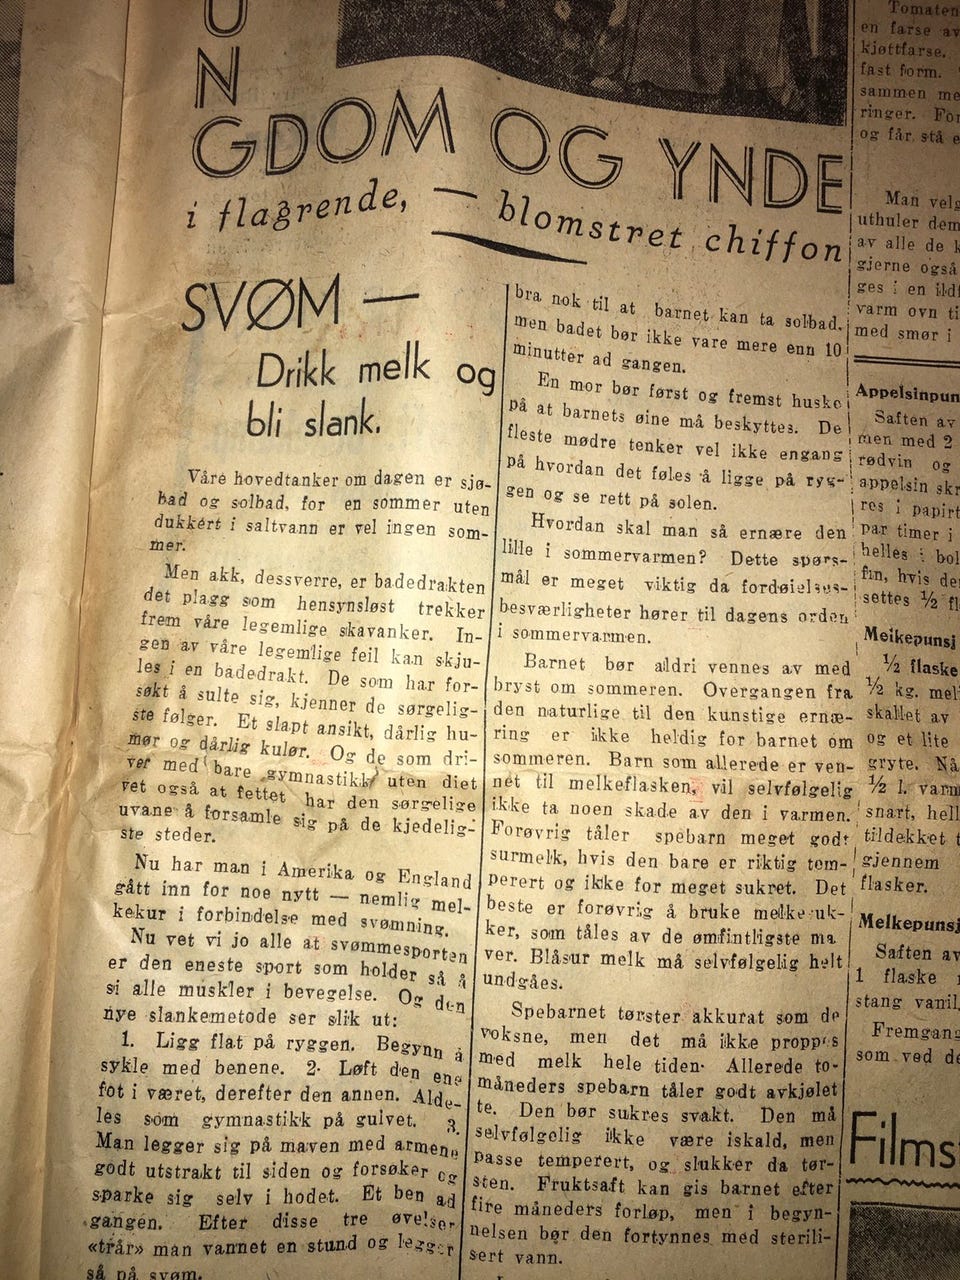 UNGDOM OG YNDE
i flagrende, — blomstret chiffon
SVØM —
Drikk melk og
bli slank.
Våre hovedtanker om dagen er sjø-
bad og solbad, for en sommer uten
dukkert i saltvann er vel ingen som-
mer.
Men akk, dessverre, er badedrakten
det plagg som hensynsløst trekker
frem våre legemlige skavanker. In-
gen av våre legemlige feil kan skju-
les i en badedrakt. De som har for-
søkt å sulte sig, kjenner de sørgelig-
ste følger. Et slapt ansikt, dårlig hu-
mør og dårlig kulør. Og de som dri-
ver med bare gymnastikk uten diet
vet også at fettet har den sørgelige
uvane å forsamle sig på de kjedelig-
ste steder.
Nu har man i Amerika og England
gått inn for noe nytt — nemlig mel-
kekur i forbindelse med svømning.
Nu vet vi jo alle at svømmesporten
er den eneste sport som holder så å
si alle muskler i bevegelse. Og den
nye slankemetode ser slik ut:
1. Ligg flat på ryggen. Begynn å
sykle med benene. 2. Løft den ene
fot i været, derefter den annen. Alde-
les som gymnastikk på gulvet. 3.
Man legger sig på maven med armene
godt utstrakt til siden og forsøker og
sparke sig selv i hodet. Et ben ad
gangen. Efter disse tre øvelser
«trår» man vannet en stund og legger
så på svøm.
bra nok til at barnet kan ta solbad.
men badet bør ikke vare mere enn 10
minutter ad gangen.
En mor bør først og fremst huske
på at barnets øine må beskyttes. De
fleste mødre tenker vel ikke engang
på hvordan det føles å ligge på ryg-
gen og se rett på solen.
Hvordan skal man så ernære den
lille i sommervarmen? Dette spørs-
mål er meget viktig da fordøielses-
besværligheter hører til dagens orden
i sommervarmen.
Barnet bør aldri vennes av med
bryst om sommeren. Overgangen fra
den naturlige til den kunstige ernæ-
ring er ikke heldig for barnet om
sommeren. Barn som allerede er ven-
net til melkeflasken, vil selvfølgelig
ikke ta noen skade av den i varmen.
Forøvrig tåler spebarn meget godt
surmelk, hvis den bare er riktig tem-
perert og ikke for meget sukret. Det
beste er forøvrig å bruke melkesuk-
ker, som tåles av de ømfintligste ma
ver. Blåsur melk må selvfølgelig helt
undgåes.
Spebarnet tørster akkurat som de
voksne, men det må ikke proppes
med melk hele tiden. Allerede to-
måneders spebarn tåler godt avkjølet
te. Den bør sukres svakt. Den må
selvfølgelig ikke være iskald, men
passe temperert, og slukker da tør-
sten. Fruktsaft kan gis barnet efter
fire måneders forløp, men i begyn-
nelsen bør den fortynnes med sterili-
sert vann.
Tomaten
en farse av
kjøttfarse.
fast form.
sammen me
ringer. For
og får stå e
Man velg
uthuler dem
av alle de k
gjerne også
ges i en ildf
varm ovn ti
med smør i
Appelsinpun
Saften av
men med 2
rødvin og
appelsin skr
res i papirt
par timer i
helles i bol
fin, hvis de
settes ½ fl
Melkepunsj
½ flaske
½ kg. mel
skallet av
og et lite
gryte. Nå
½ l. varm
snart, hell
tildekket t
gjennem
flasker.
Melkepunsj
Saften av
1 flaske
stang vanil
Fremgang
som ved de
Filmst